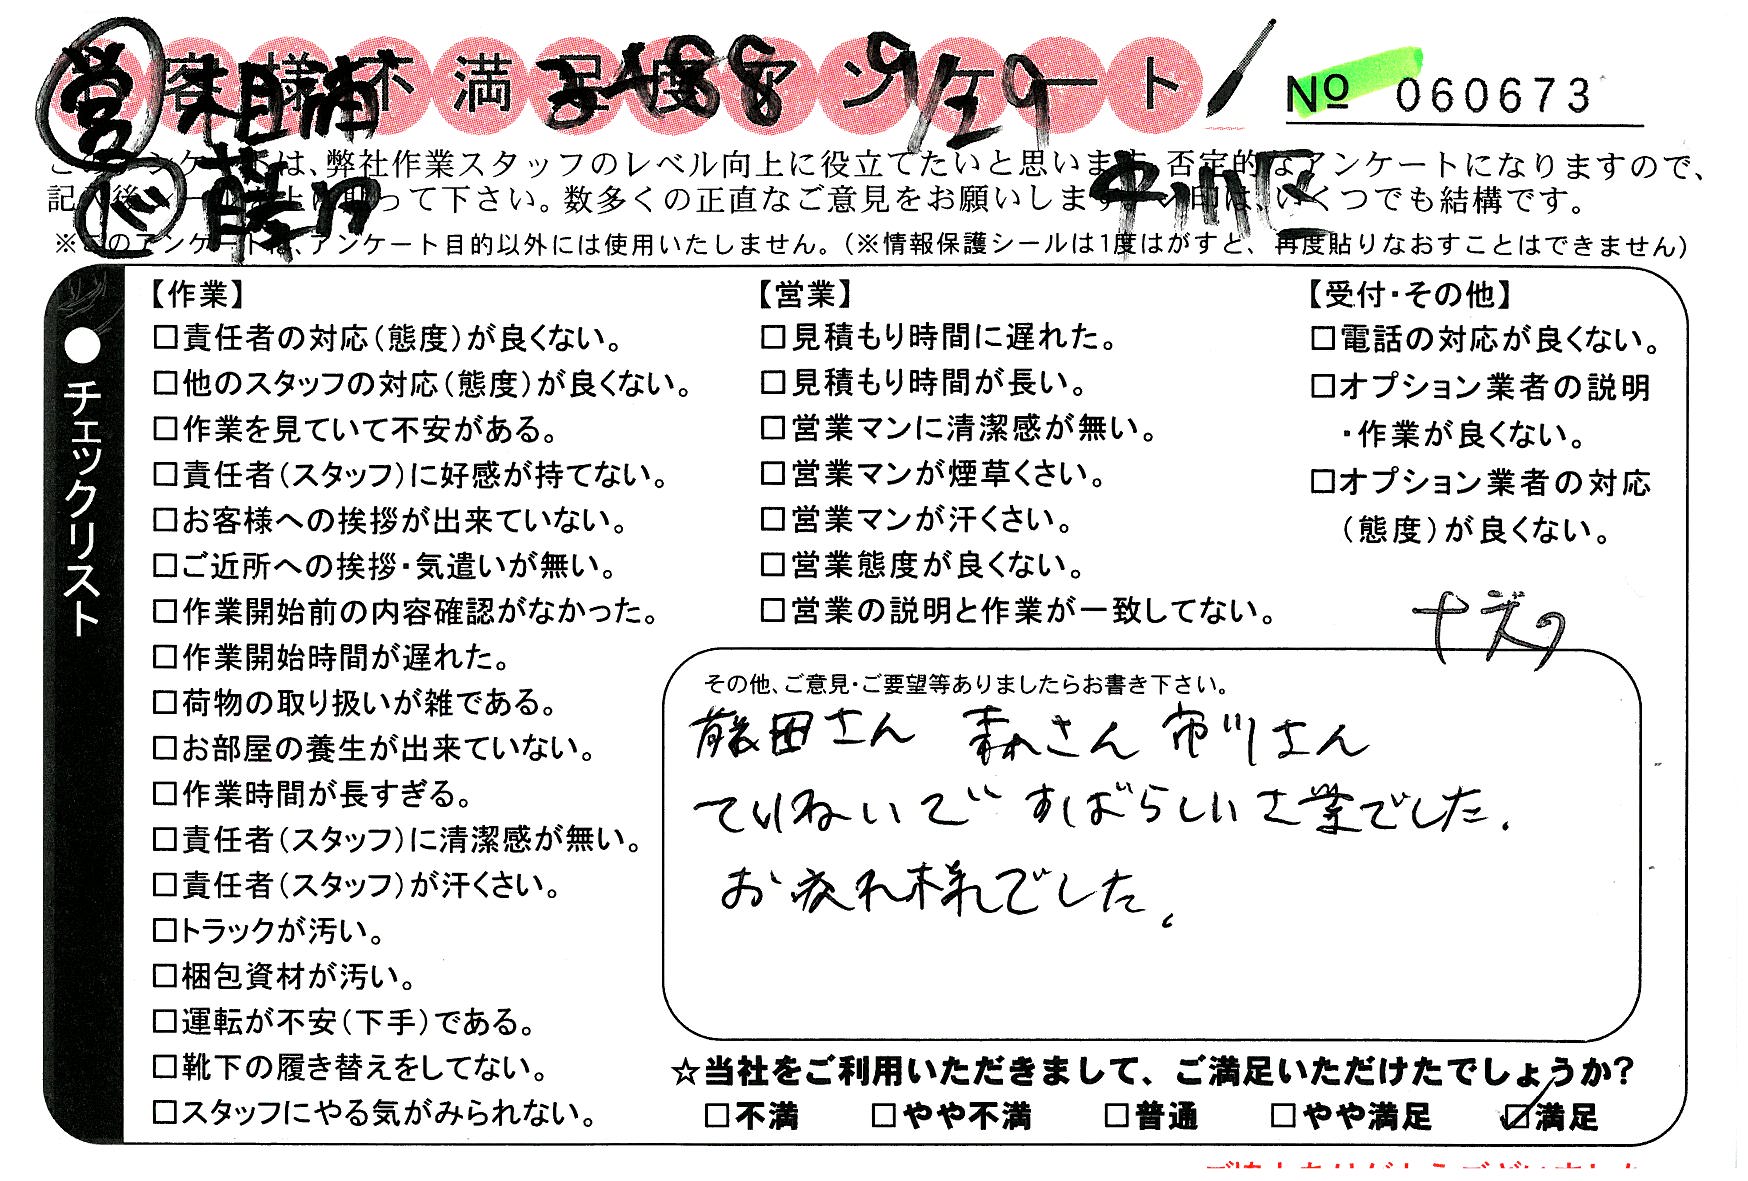 お客様不満足度アンケート
№ 060673
営 相浦 3-488 9/29
バ 藤田 中川区
このアンケートは、弊社作業スタッフのレベル向上に役立てたいと思います。否定的なアンケートになりますので、
記入後シールを上に貼って下さい。数多くの正直なご意見をお願いします。レ印は、いくつでも結構です。
※このアンケートは、アンケート目的以外には使用いたしません。(※情報保護シールは1度はがすと、再度貼りなおすことはできません)
●チェックリスト
【作業】
□責任者の対応(態度)が良くない。
□他のスタッフの対応(態度)が良くない。
□作業を見ていて不安がある。
□責任者(スタッフ)に好感が持てない。
□お客様への挨拶が出来ていない。
□ご近所への挨拶・気遣いが無い。
□作業開始前の内容確認がなかった。
□作業開始時間が遅れた。
□荷物の取り扱いが雑である。
□お部屋の養生が出来ていない。
□作業時間が長すぎる。
□責任者(スタッフ)に清潔感が無い。
□責任者(スタッフ)が汗くさい。
□トラックが汚い。
□梱包資材が汚い。
□運転が不安(下手)である。
□靴下の履き替えをしてない。
□スタッフにやる気がみられない。
【営業】
□見積もり時間に遅れた。
□見積もり時間が長い。
□営業マンに清潔感が無い。
□営業マンが煙草くさい。
□営業マンが汗くさい。
□営業態度が良くない。
□営業の説明と作業が一致してない。
【受付・その他】
□電話の対応が良くない。
□オプション業者の説明
・作業が良くない。
□オプション業者の対応
(態度)が良くない。
その他、ご意見・ご要望等ありましたらお書き下さい。
藤田さん 森さん 市川さん
ていねいで すばらしいさ業でした.
お疲れ様でした。
☆当社をご利用いただきまして、ご満足いただけたでしょうか?
□不満 □やや不満 □普通 □やや満足 ☑満足